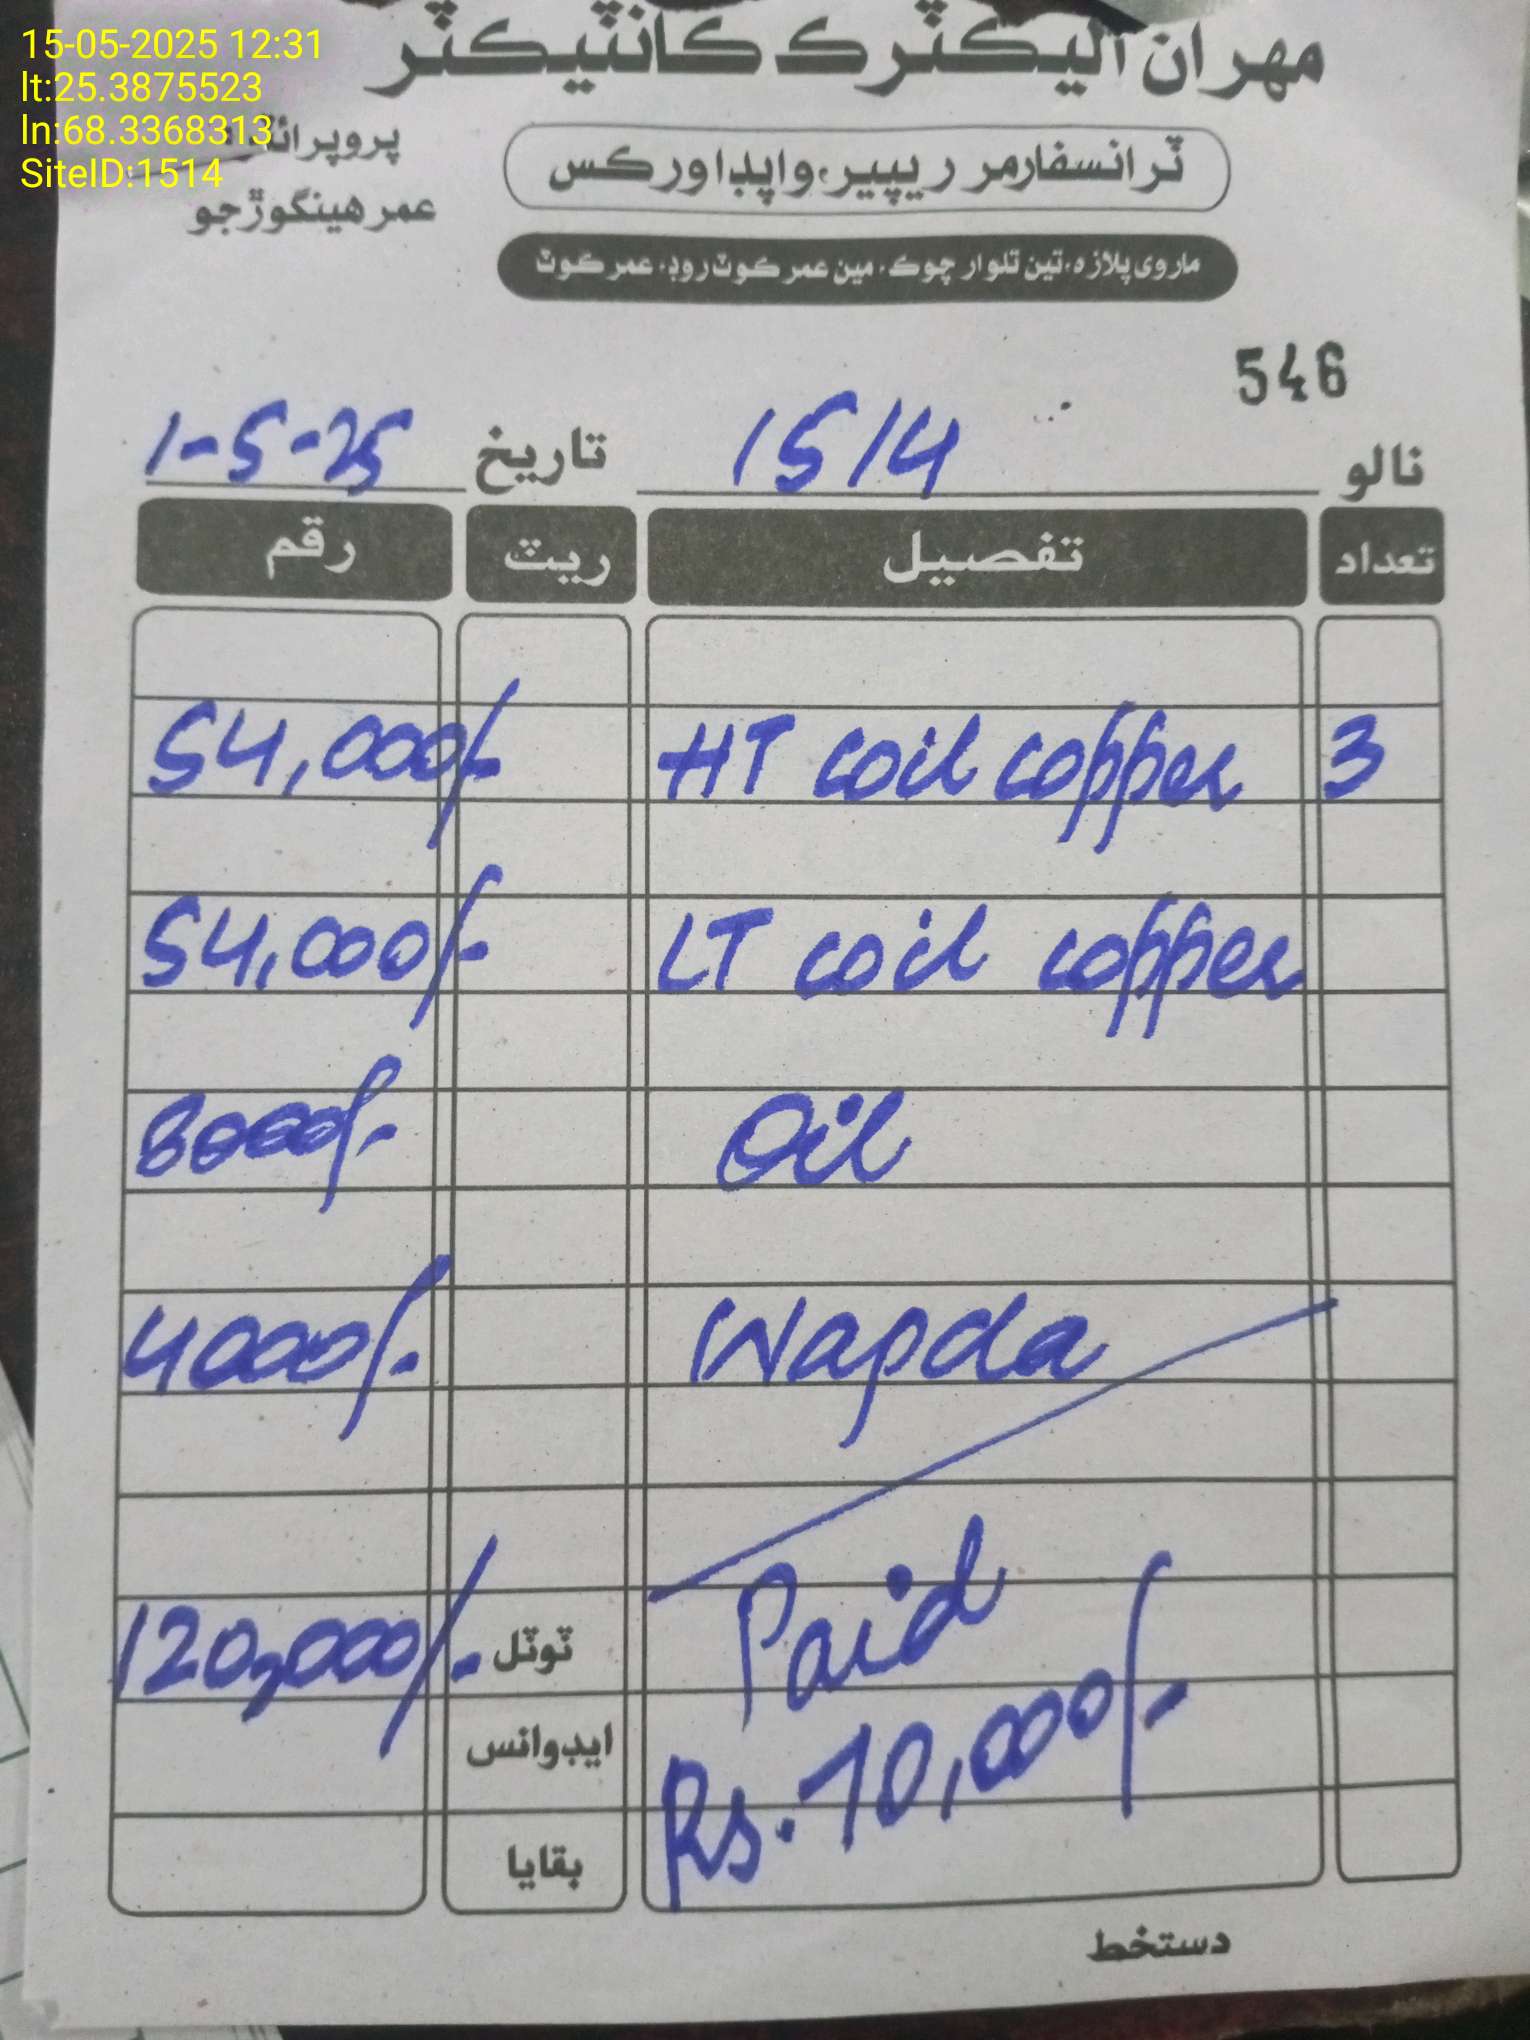 15-05-2025 12:31
lt:25.3875523
ln:68.3368313
SiteID:1514
مهران اليڪٽرڪ ڪانٽيڪٽر
ٽرانسفارمر ريپير، واپڊا ورڪس
عمر هينڱوڙجو
ماروي پلازه، تين تلوار چوڪ، مين عمرڪوٽ روڊ، عمرڪوٽ
546
نالو 1514 تاريخ 1-5-25
تعداد تفصيل ريٽ رقم
3 HT coil copper 54,000/-
LT coil copper 54,000/-
Oil 8000/-
Wapda 4000/-
ٽوٽل 120,000/-
Paid
ايڊوانس
Rs. 70,000/-
بقايا
دستخط